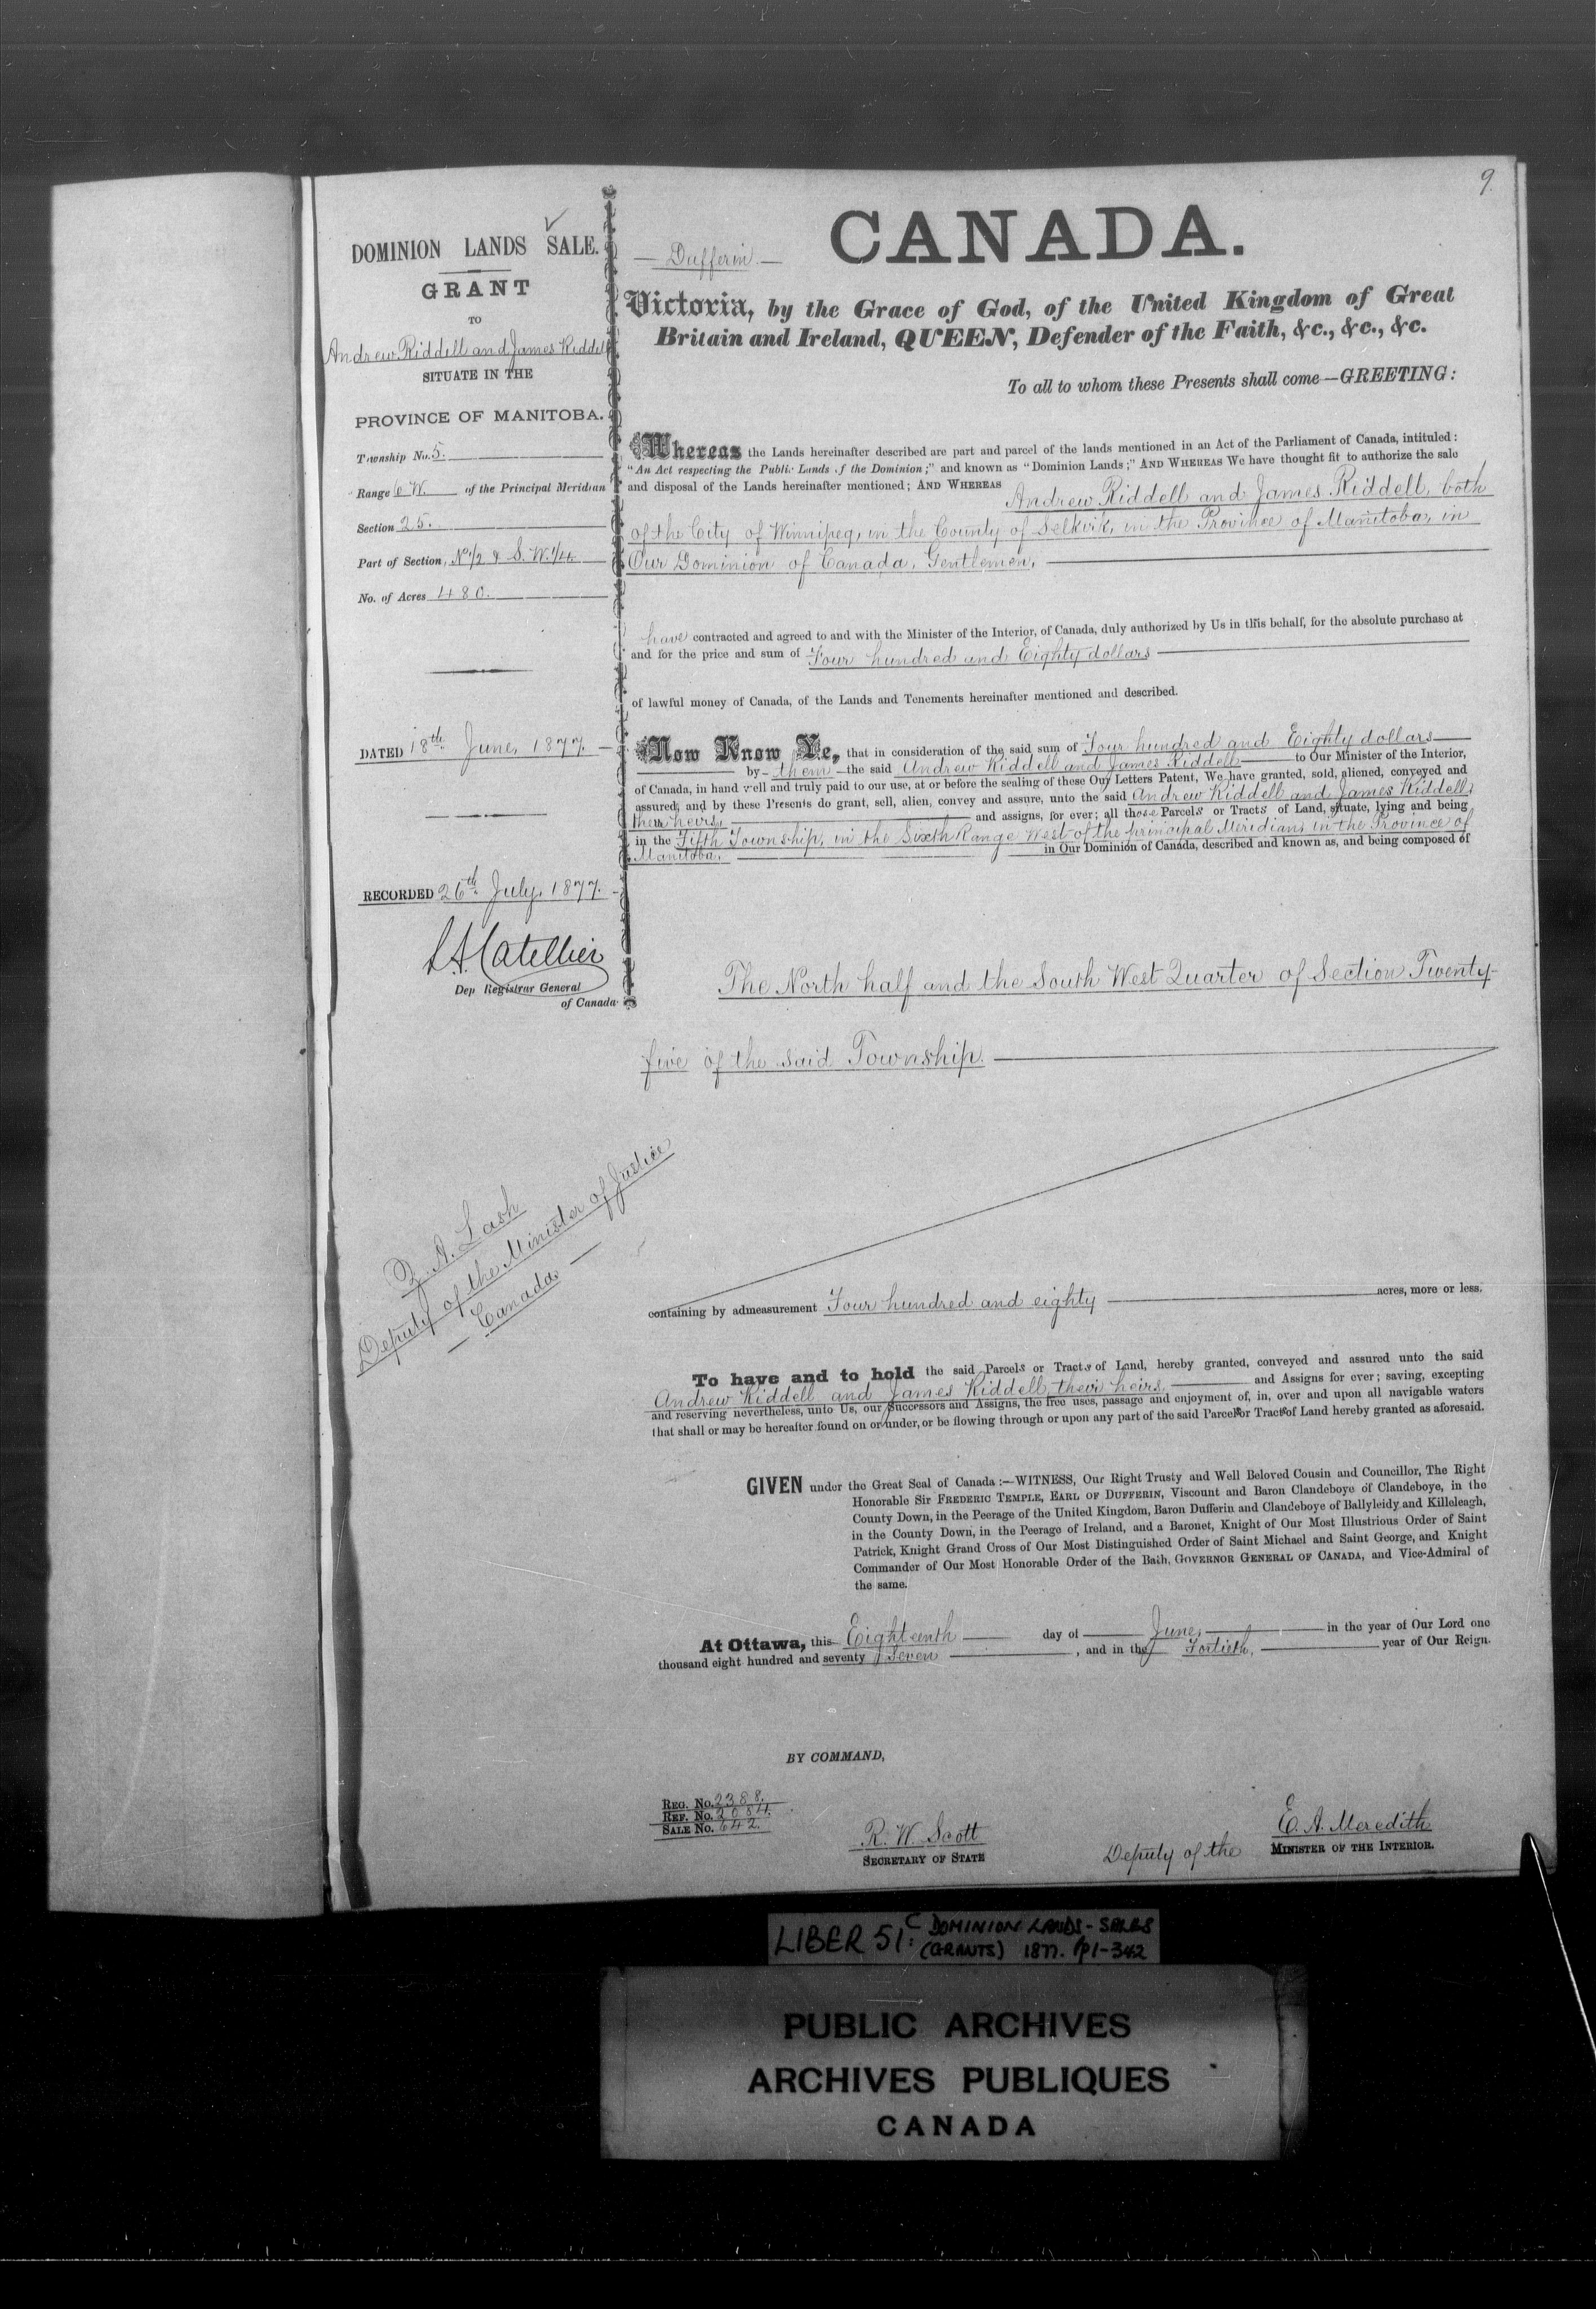 9.
DOMINION LANDS SALE.
GRANT
TO
Andrew Riddell and James Riddell
SITUATE IN THE
PROVINCE OF MANITOBA.
Township No. 5.
Range 6 W. of the Principal Meridian
Section 25.
Part of Section, N 1/2 & S. W. 1/4
No. of Acres 480.
DATED 18th June, 1877.
RECORDED 26th July, 1877.
Dep Registrar General
of Canada
Z. A. Lash
Deputy of the Minister of Justice
Canada
Dufferin
CANADA.
Victoria, by the Grace of God, of the United Kingdom of Great
Britain and Ireland, QUEEN, Defender of the Faith, &c., &c., &c.
To all to whom these Presents shall come—GREETING:
Whereas the Lands hereinafter described are part and parcel of the lands mentioned in an Act of the Parliament of Canada, intituled:
"An Act respecting the Public Lands of the Dominion;" and known as "Dominion Lands;" AND WHEREAS We have thought fit to authorize the sale
and disposal of the Lands hereinafter mentioned; AND WHEREAS Andrew Riddell and James Riddell, both
of the City of Winnipeg, in the County of Selkirk, in the Province of Manitoba, in
Our Dominion of Canada, Gentlemen,
have contracted and agreed to and with the Minister of the Interior, of Canada, duly authorized by Us in this behalf, for the absolute purchase at
and for the price and sum of Four hundred and Eighty dollars
of lawful money of Canada, of the Lands and Tenements hereinafter mentioned and described.
Now Know Ye, that in consideration of the said sum of Four hundred and Eighty dollars
by them the said Andrew Riddell and James Riddell to Our Minister of the Interior,
of Canada, in hand well and truly paid to our use, at or before the sealing of these Our Letters Patent, We have granted, sold, aliened, conveyed and
assured, and by these Presents do grant, sell, alien, convey and assure, unto the said Andrew Riddell and James Riddell,
their heirs, and assigns, for ever; all those Parcels or Tracts of Land, situate, lying and being
in the Fifth Township, in the Sixth Range West of the principal Meridian, in the Province of
Manitoba, in Our Dominion of Canada, described and known as, and being composed of
The North half and the South West Quarter of Section Twenty-
five of the said Township.
containing by admeasurement Four hundred and eighty acres, more or less.
To have and to hold the said Parcels or Tracts of Land, hereby granted, conveyed and assured unto the said
Andrew Riddell and James Riddell, their heirs, and Assigns for ever; saving, excepting
and reserving nevertheless, unto Us, our Successors and Assigns, the free uses, passage and enjoyment of, in, over and upon all navigable waters
that shall or may be hereafter found on or under, or be flowing through or upon any part of the said Parcels or Tracts of Land hereby granted as aforesaid.
GIVEN under the Great Seal of Canada:—WITNESS, Our Right Trusty and Well Beloved Cousin and Councillor, The Right
Honorable Sir FREDERIC TEMPLE, EARL OF DUFFERIN, Viscount and Baron Clandeboye of Clandeboye, in the
County Down, in the Peerage of the United Kingdom, Baron Dufferin and Clandeboye of Ballyleidy and Killeleagh,
in the County Down, in the Peerage of Ireland, and a Baronet, Knight of Our Most Illustrious Order of Saint
Patrick, Knight Grand Cross of Our Most Distinguished Order of Saint Michael and Saint George, and Knight
Commander of Our Most Honorable Order of the Bath, GOVERNOR GENERAL OF CANADA, and Vice-Admiral of
the same.
At Ottawa, this Eighteenth day of June, in the year of Our Lord one
thousand eight hundred and seventy Seven, and in the Fortieth, year of Our Reign.
BY COMMAND,
REG. No. 2388.
REF. No. 2084.
SALE No. 642.
R. W. Scott
SECRETARY OF STATE
E. A. Meredith
Deputy of the MINISTER OF THE INTERIOR.
LIBER 51C: DOMINION LANDS - SALES
(GRANTS) 1877. pp1-342
PUBLIC ARCHIVES
ARCHIVES PUBLIQUES
CANADA